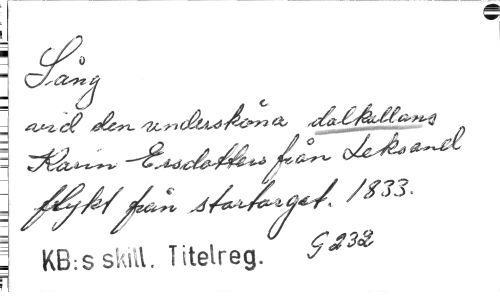 Sång
vid den undersköna dalkullans
Karin Ersdotters från Leksand
flykt från stortorget. 1833.
KB:s skill. Titelreg. G 232